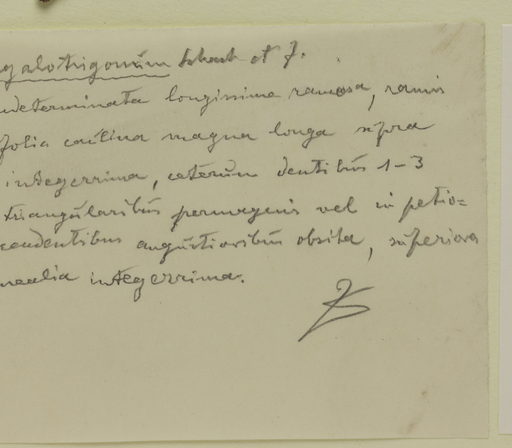 galotrigonum Schack et Z.
ndeterminata longissime ramosa, ramis
folia caulina magna longa supra
integerrima, ceterum dentibus 1–3
triangularibus permagnis vel in petio=
cendentibus angustioribus obsita, superiora
nealia integerrima.